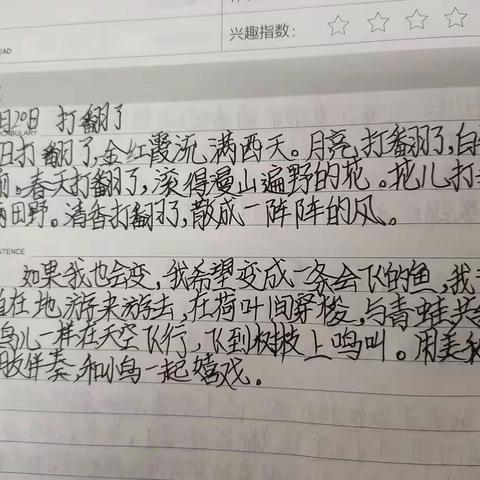 兴趣指数：☆ ☆ ☆ ☆
EAD
月20日 打翻了
VOCABULARY
日打翻了，金红霞流满西天。月亮打翻了，白
。春天打翻了，滚得漫山遍野的花。花儿打
田野。清香打翻了，散成一阵阵的风。
ENTENCE
如果我也会变，我希望变成一条会飞的鱼，我
在地游来游去，在荷叶间穿梭，与青蛙共
鸟儿一样在天空飞行，飞到树枝上鸣叫。用美
伴奏，和小鸟一起嬉戏。